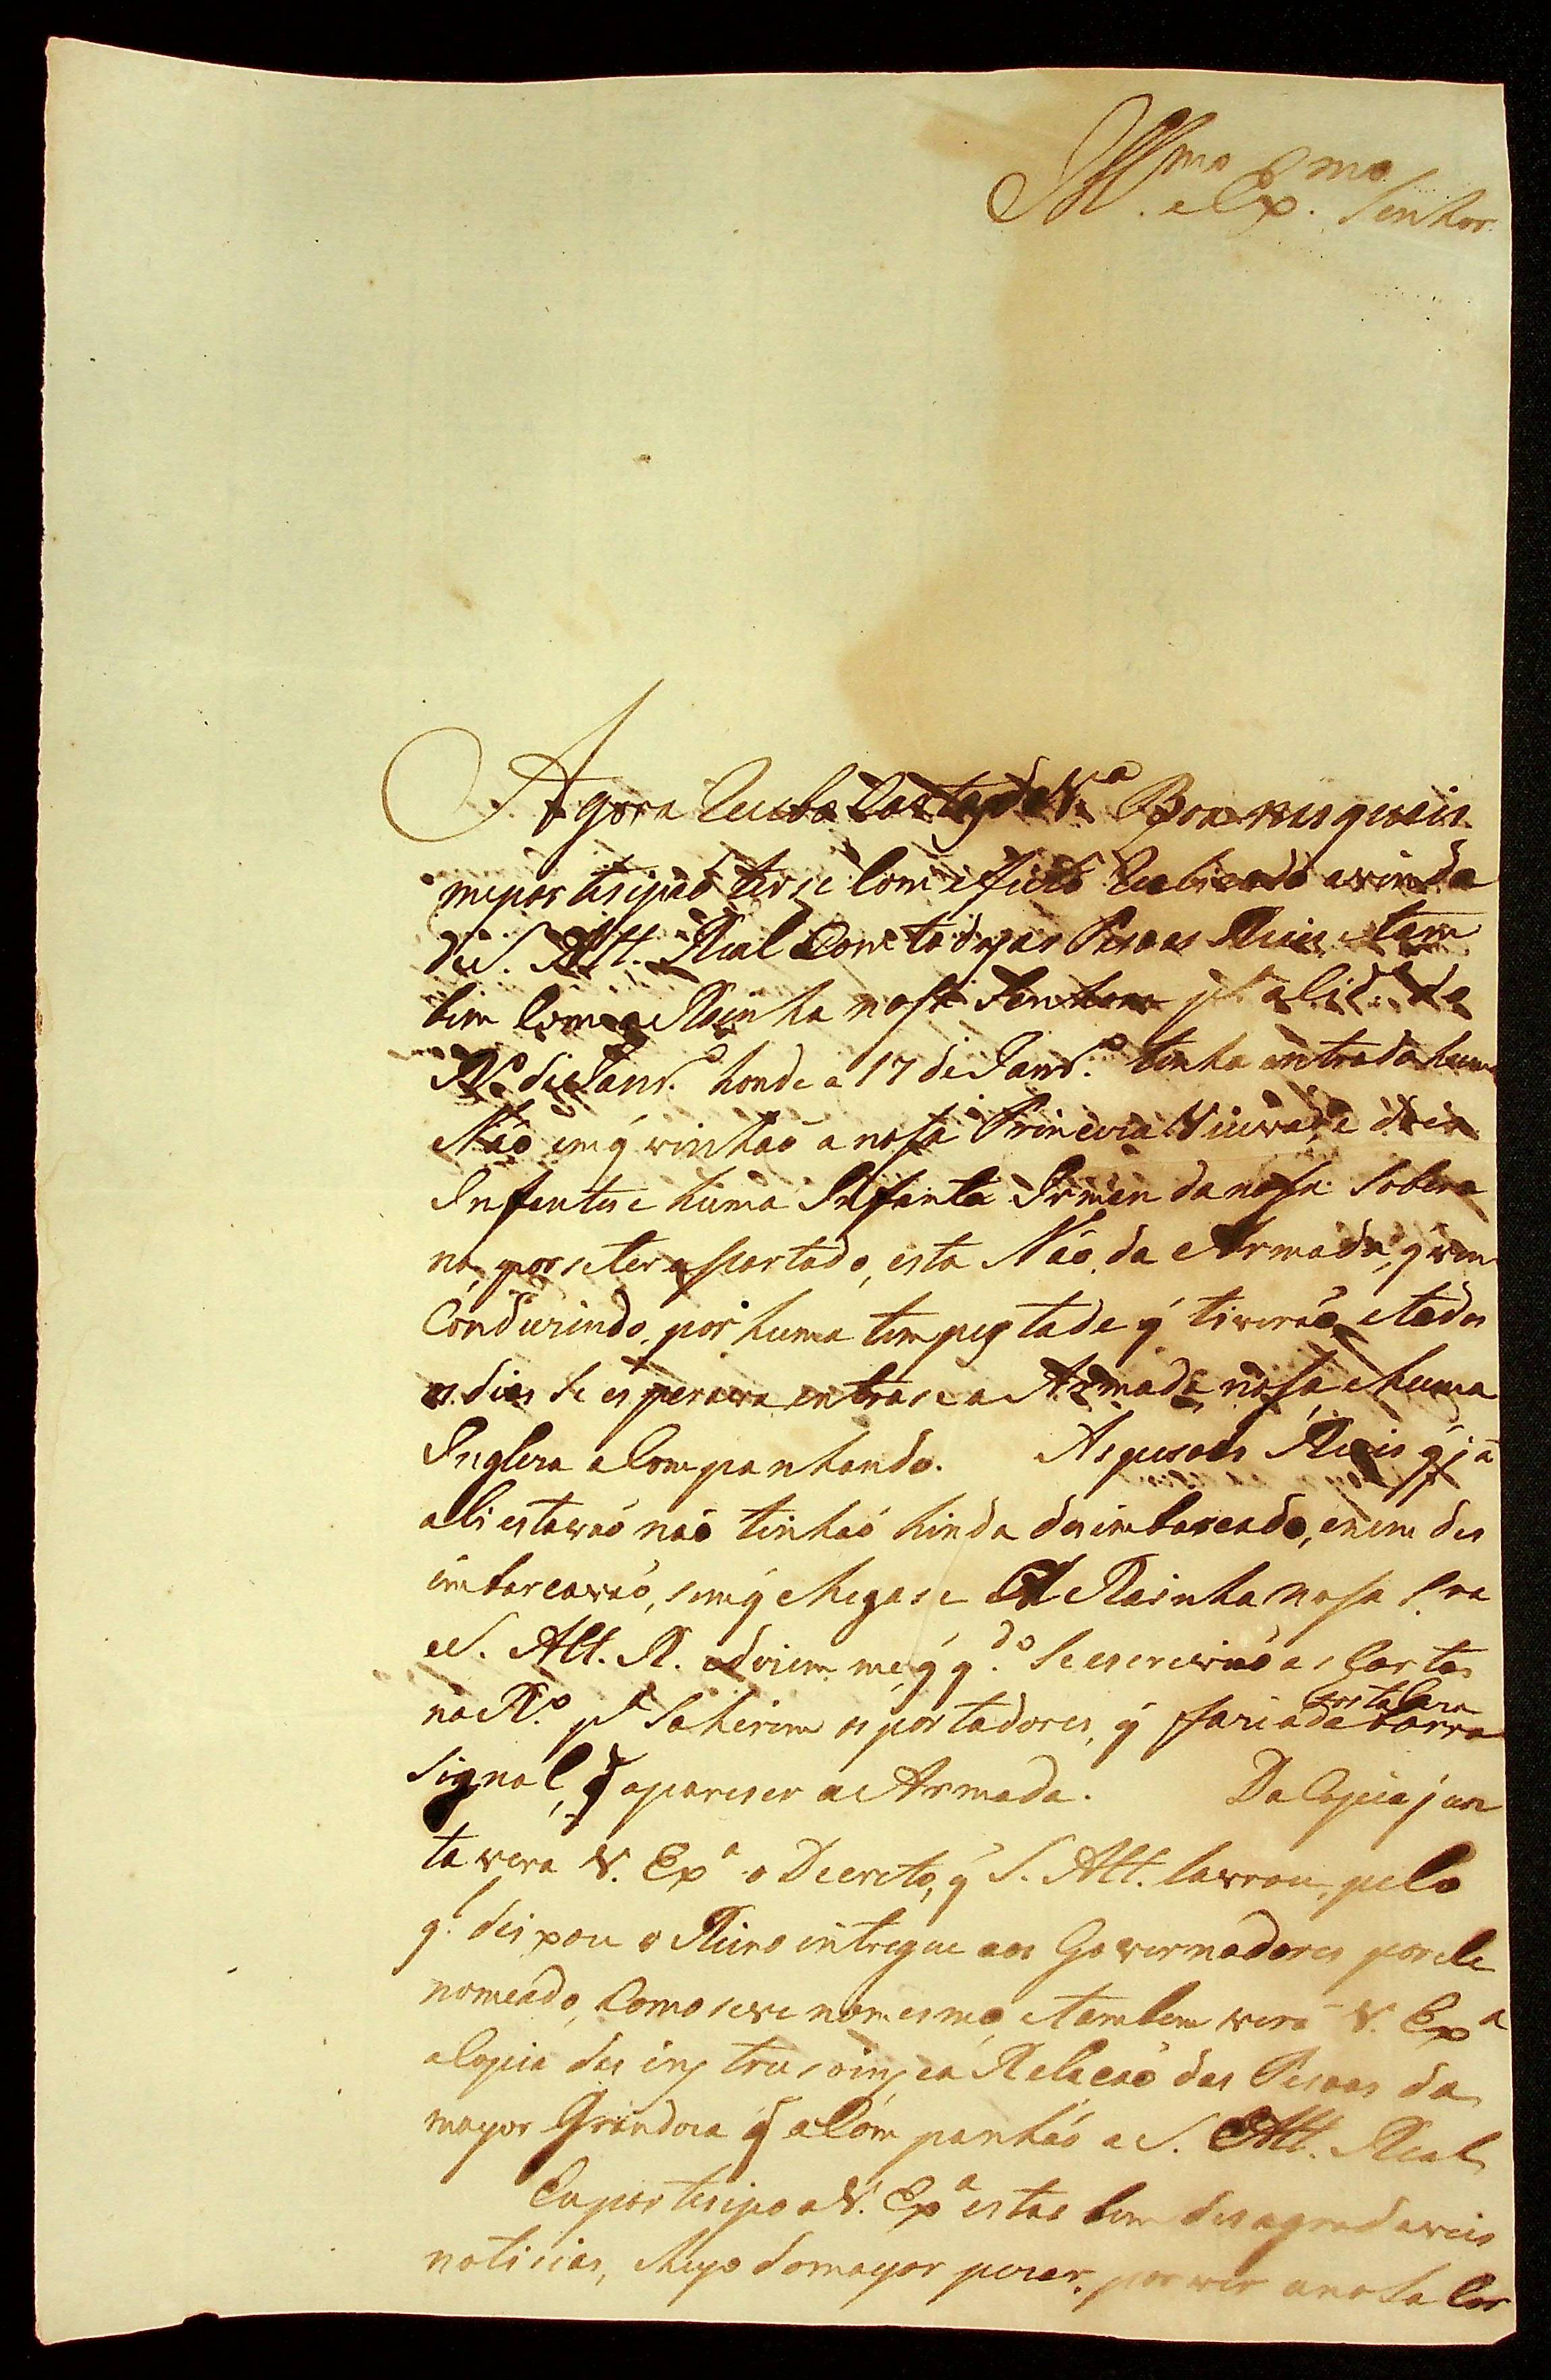 Ill.mo e Ex.mo Senhor
Agora Recebo Cartas de V.a Boa nas quais
me partisipaõ terse Com efeito Realizado a vinda
de S. Alt. Real Com todas as Pesoas Reais e tam
bem Com a Rainha nosa Senhora p.a a Cid.e do
R.o de Janr.o honde a 17 de Janr.o tinha entrado huma
Náo em q̃ vinhaõ a nosa Princeza Viuva, e duas
Infantas e huma Infanta Irman da nosa Sobera
na, por se ter aspartado, esta Náo, da Armada, q̃ vem
Conduzindo, por huma tempestade q̃ tiveraõ, e todos
os dias se esperava entrase a Armada nosa, e huma
Ingleza aCompanhando. As pesoas Reais q̃ já
ali estavaõ naõ tinhaõ hinda desimbarcado, e nem des
imbarcavaõ, sem q̃ chegase A Rainha nosa Snra
e S. Alt. R. e dizem me, q̃ q.do se escreviaõ as Cartas
no R.o p.a sahirem os portadores, q̃ fazia a Fortaleza da barra
signal, de apareser a Armada. Da Copia jun
ta verá V. Ex.a o Decreto, q̃ S. Alt. lavrou, pelo
q.l deixou o Reino intregue aos Governadores por ele
nomeado, Como se ve no mesmo, e tambem verá V. Ex.a
a Copia das instrusoins, e a Relacaõ das Pesoas da
mayor Grandeza q̃ aCompanhaõ a S. Alt. Real
Eu partisipo a V. Ex.a estas bem desagradaveis
notisias, cheyo do mayor pezar, por ver a nosa Cor